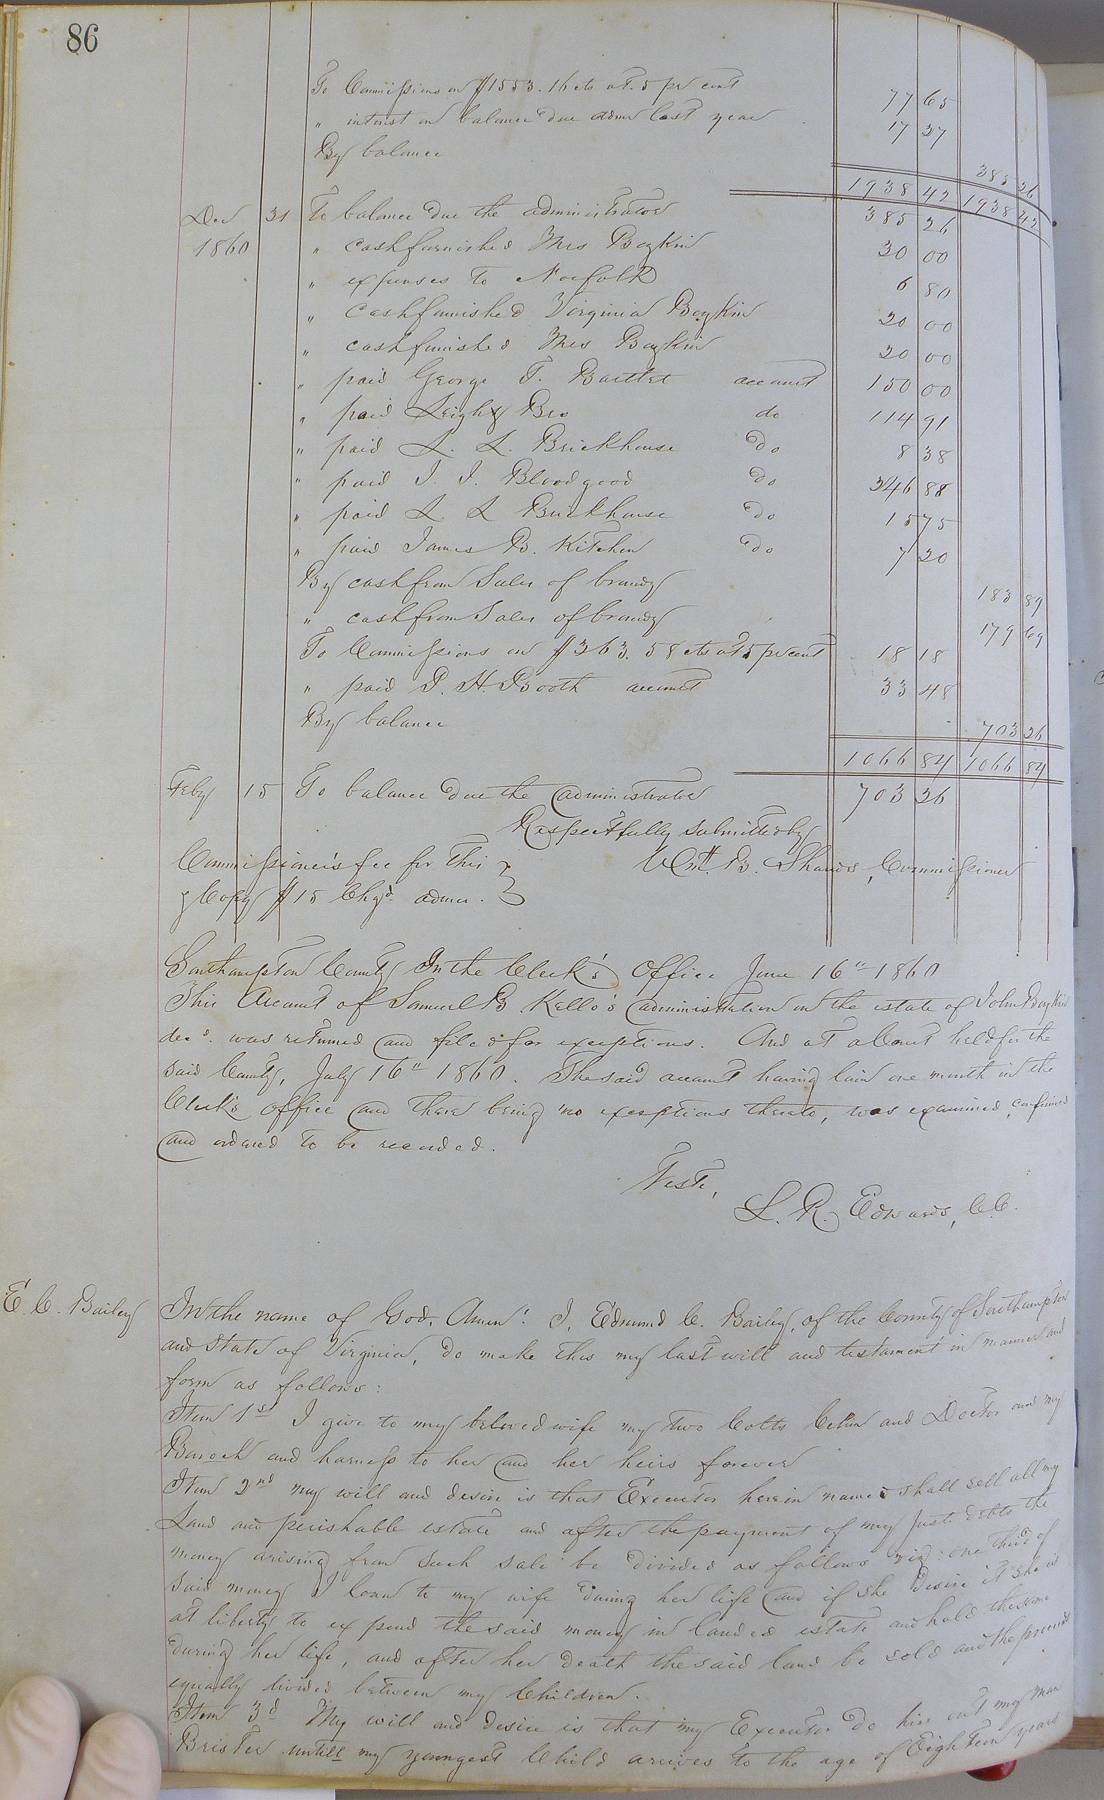 86
To Commissions on $1553.16 cts at 5 pr cent 77 65
" interest on balance due admr last year 17 37
By balance 385 26
1938 42 1938 42
Dec 31 To balance due the administrator 385 26
1860 " cash furnished Mrs Boykin 30 00
" expenses to Norfolk 6 80
" cash furnished Virginia Boykin 20 00
" cash furnished Mrs Boykin 20 00
" paid George T. Bartlet account 150 00
" paid Leigh & Bro do 114 91
" paid L. L. Brickhouse Do 8 38
" paid I. I. Bloodgood Do 246 88
" paid L L Brickhouse Do 15 75
" paid James B. Kitchen Do 7 20
By cash from Sales of brandy 183 89
" cash from Sales of brandy 179 69
To Commissions on $363.58 cts at 5 pr cent 18 18
" paid P. H. Booth account 33 48
By balance 703 26
1066 84 1066 84
Feby 15 To balance due the administrator 703 26
Respectfully submitted by
Commissioner's fee for this Wm. B. Shands, Commissioner
& Copy $15 Chgd. admr.
Southampton County In the Clerk's Office June 16th 1860
This Account of Samuel B Kello's administration on the estate of John Boykin
decd. was returned and filed for exceptions. And at a Court held for the
said County, July 16th 1860. The said account having lain one month in the
Clerk's office and there being no exceptions thereto, was examined, confirmed
and ordered to be recorded.
Teste,
L. R. Edwards, C.C.
E. C. Bailey In the name of God, Amen! I, Edmund C. Bailey, of the County of Southampton
and State of Virginia, do make this my last will and testament in manner and
form as follows:
Item 1st I give to my beloved wife my two Colts and Doctor and my
Barock and harness to her and her heirs forever
Item 2nd my will and desire is that Executor herein named shall sell all my
Land and perishable estate and after the payment of my just debts the
money arising from such sale be divided as follows viz: one third of
said money I loan to my wife during her life and if she desire it she is
at liberty to expend the said money in landed estate and hold the same
during her life, and after her death the said land be sold and the proceeds
equally divided between my Children.
Item 3d My will and desire is that my Executor do hire out my man
Brister untill my youngest Child arrives to the age of Eighteen years